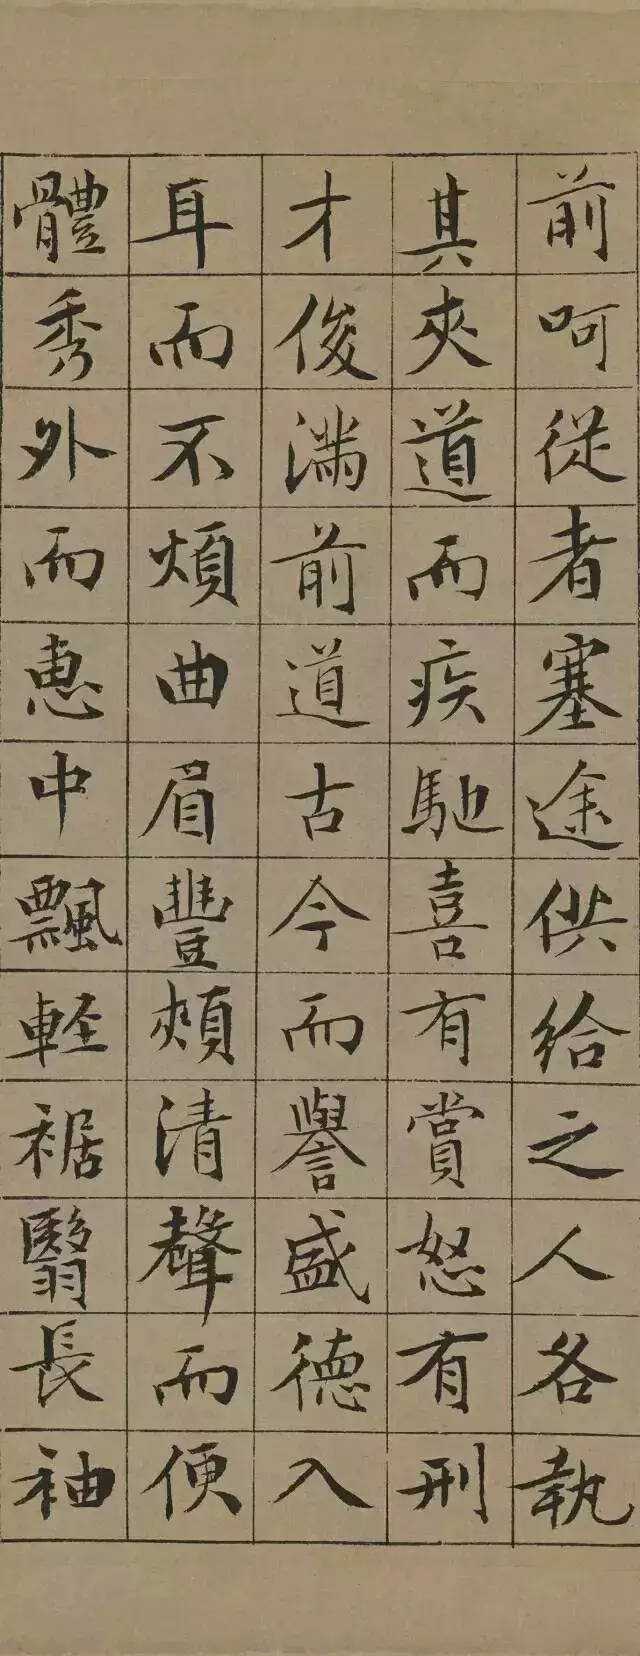 前呵從者塞途供給之人各執
其夾道而疾馳喜有賞怒有刑
才俊滿前道古今而譽盛德入
耳而不煩曲眉豐頰清聲而便
體秀外而惠中飄輕裾翳長袖